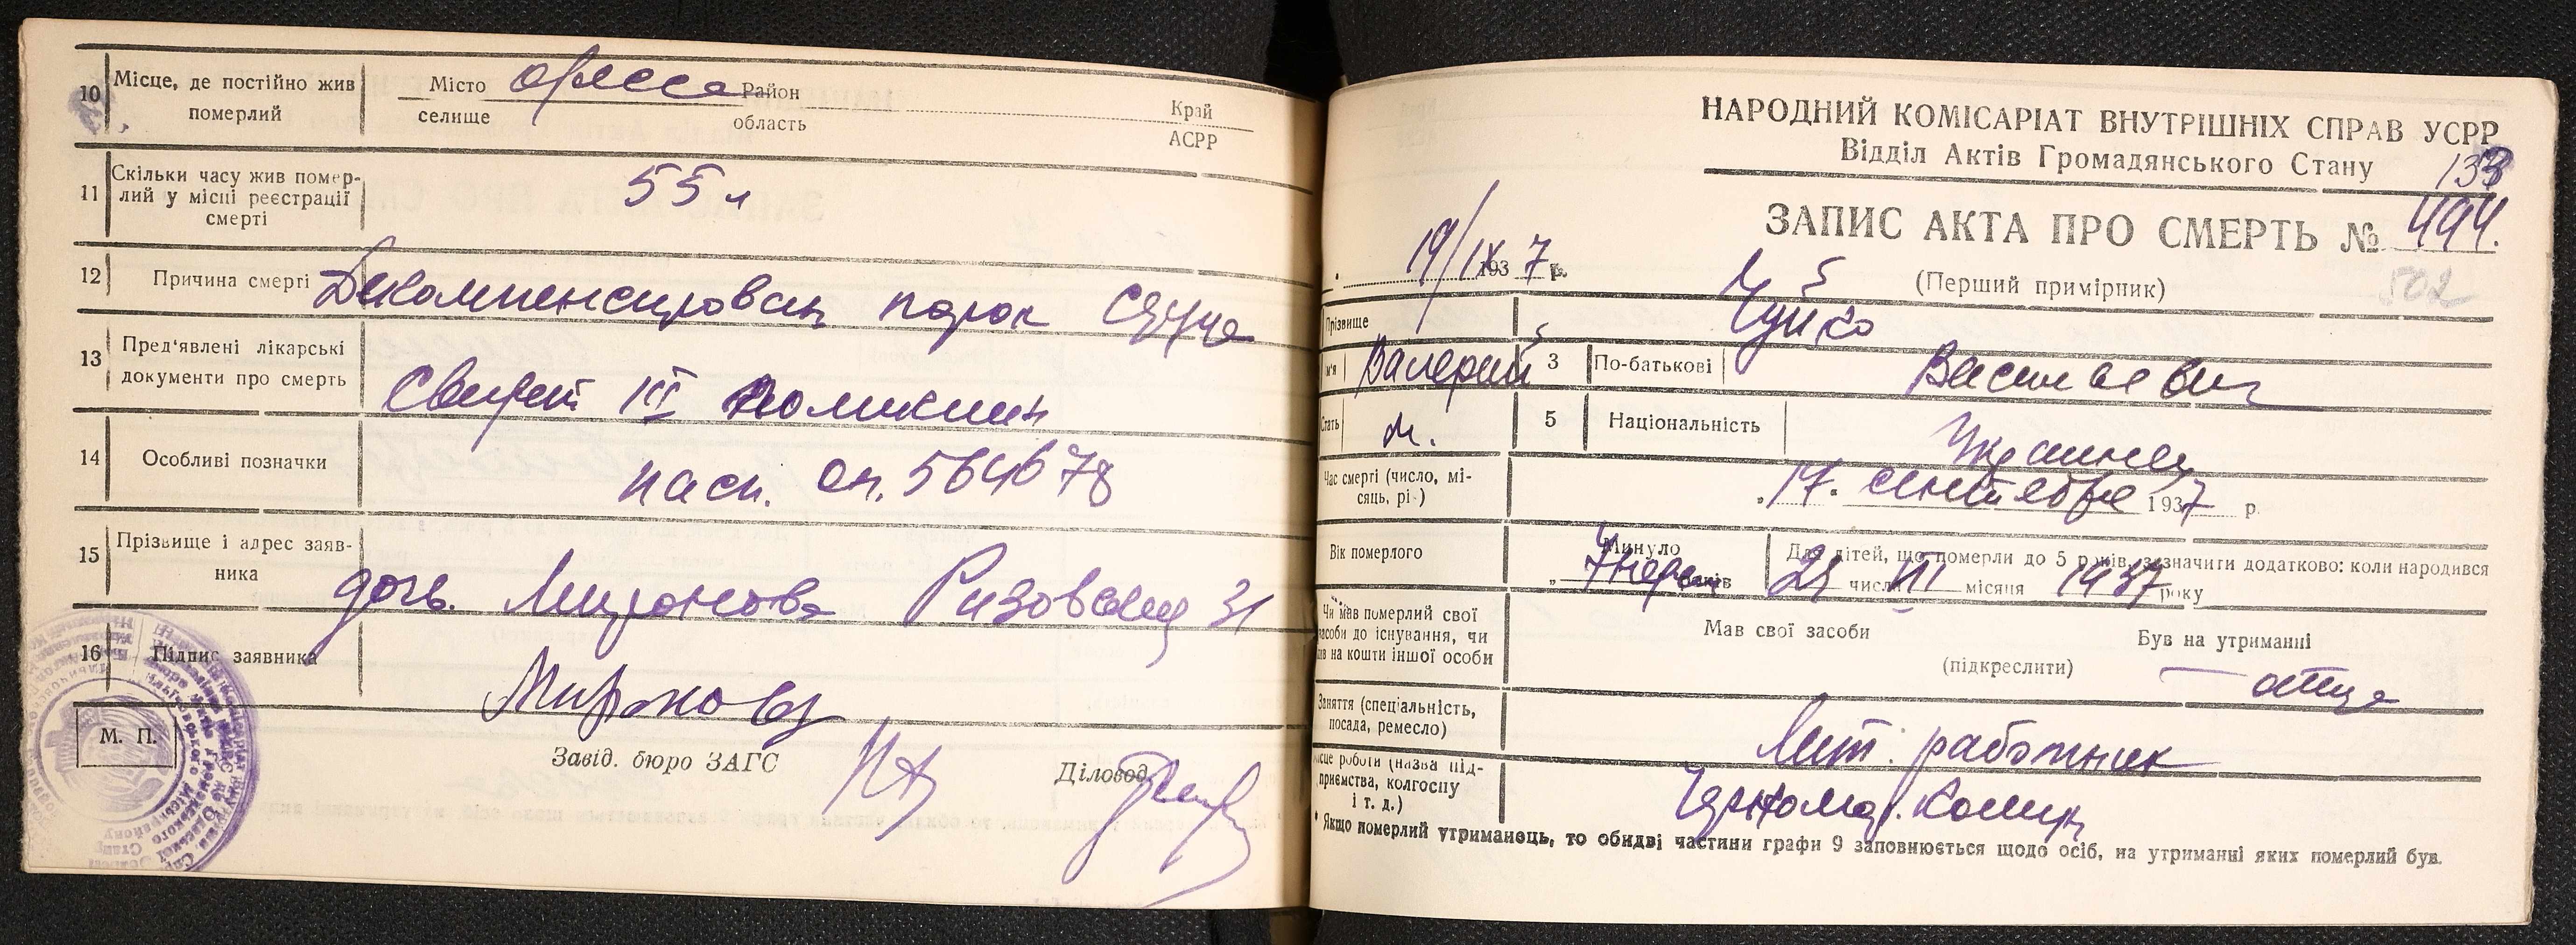 10 Місце, де постійно жив померлий
Місто Одесса Район Край
селище область АСРР
11 Скільки часу жив помер-
лий у місці реєстрації
смерті
55 л
12 Причина смерті Декомпенсирован порок сердца
13 Пред'явлені лікарські
документи про смерть
Свидет III Поликлин
14 Особливі позначки
пасп. 564678
15 Прізвище і адрес заяв-
ника
дочь. Миронова 31
16 Підпис заявника
Миронова
М. П.
Завід. бюро ЗАГС Діловод
НАРОДНИЙ КОМІСАРІАТ ВНУТРІШНІХ СПРАВ УСРР
Відділ Актів Громадянського Стану
133
ЗАПИС АКТА ПРО СМЕРТЬ № 494.
19/IX 1937 р.
(Перший примірник)
502
Прізвище Чуйко
Ім'я Валерий 3 По-батькові Васильевич
Стать м. 5 Національність Украинец
Час смерті (число, мі-
сяць, рік)
„ 17. сентября 1937 р.
Вік померлого
Минуло
років
Для дітей, що померли до 5 років, зазначити додатково: коли народився
числа VII місяця 1937 року
Чи мав померлий свої
засоби до існування, чи
був на кошти іншої особи
Мав свої засоби Був на утриманні
(підкреслити)
отца
Заняття (спеціальність,
посада, ремесло)
Лит. работник
Місце роботи (назва під-
приємства, колгоспу
і т. д.)
* Якщо померлий утриманець, то обидві частини графи 9 заповнюється щодо осіб, на утриманні яких померлий був.